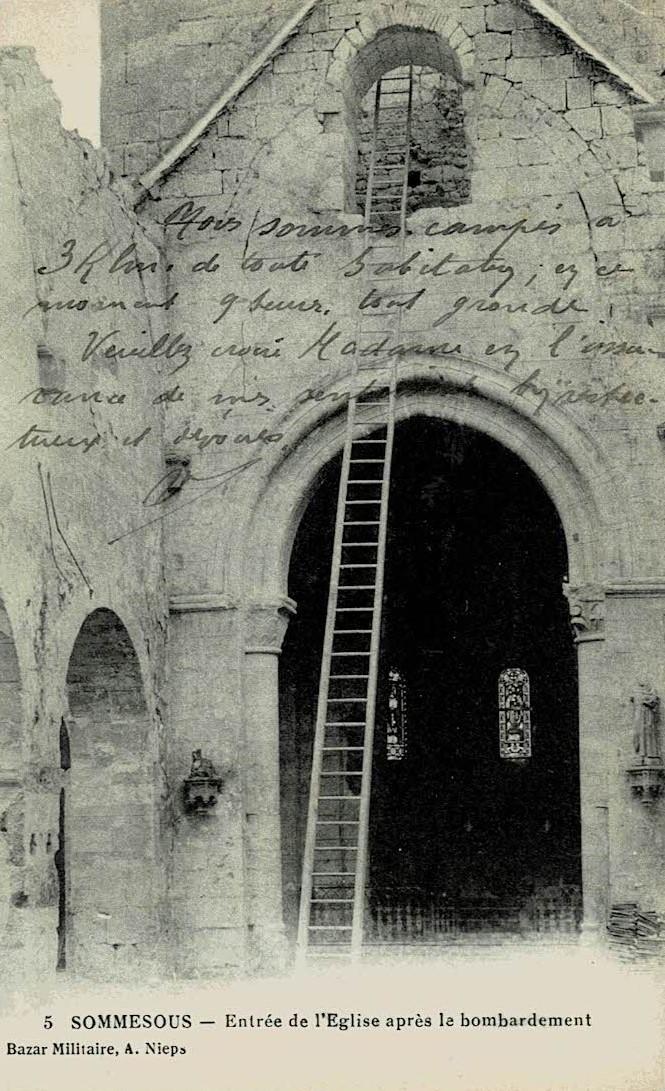 Nous sommes campés a
3 Klm. de toute habitatoy ; ey ce
moment 9 heures, tout gronde
Veuillez croire Madame ey l'assu-
rance de mes sentiments respec-
tueux et dévoués
5 SOMMESOUS — Entrée de l'Eglise après le bombardement
Bazar Militaire, A. Nieps